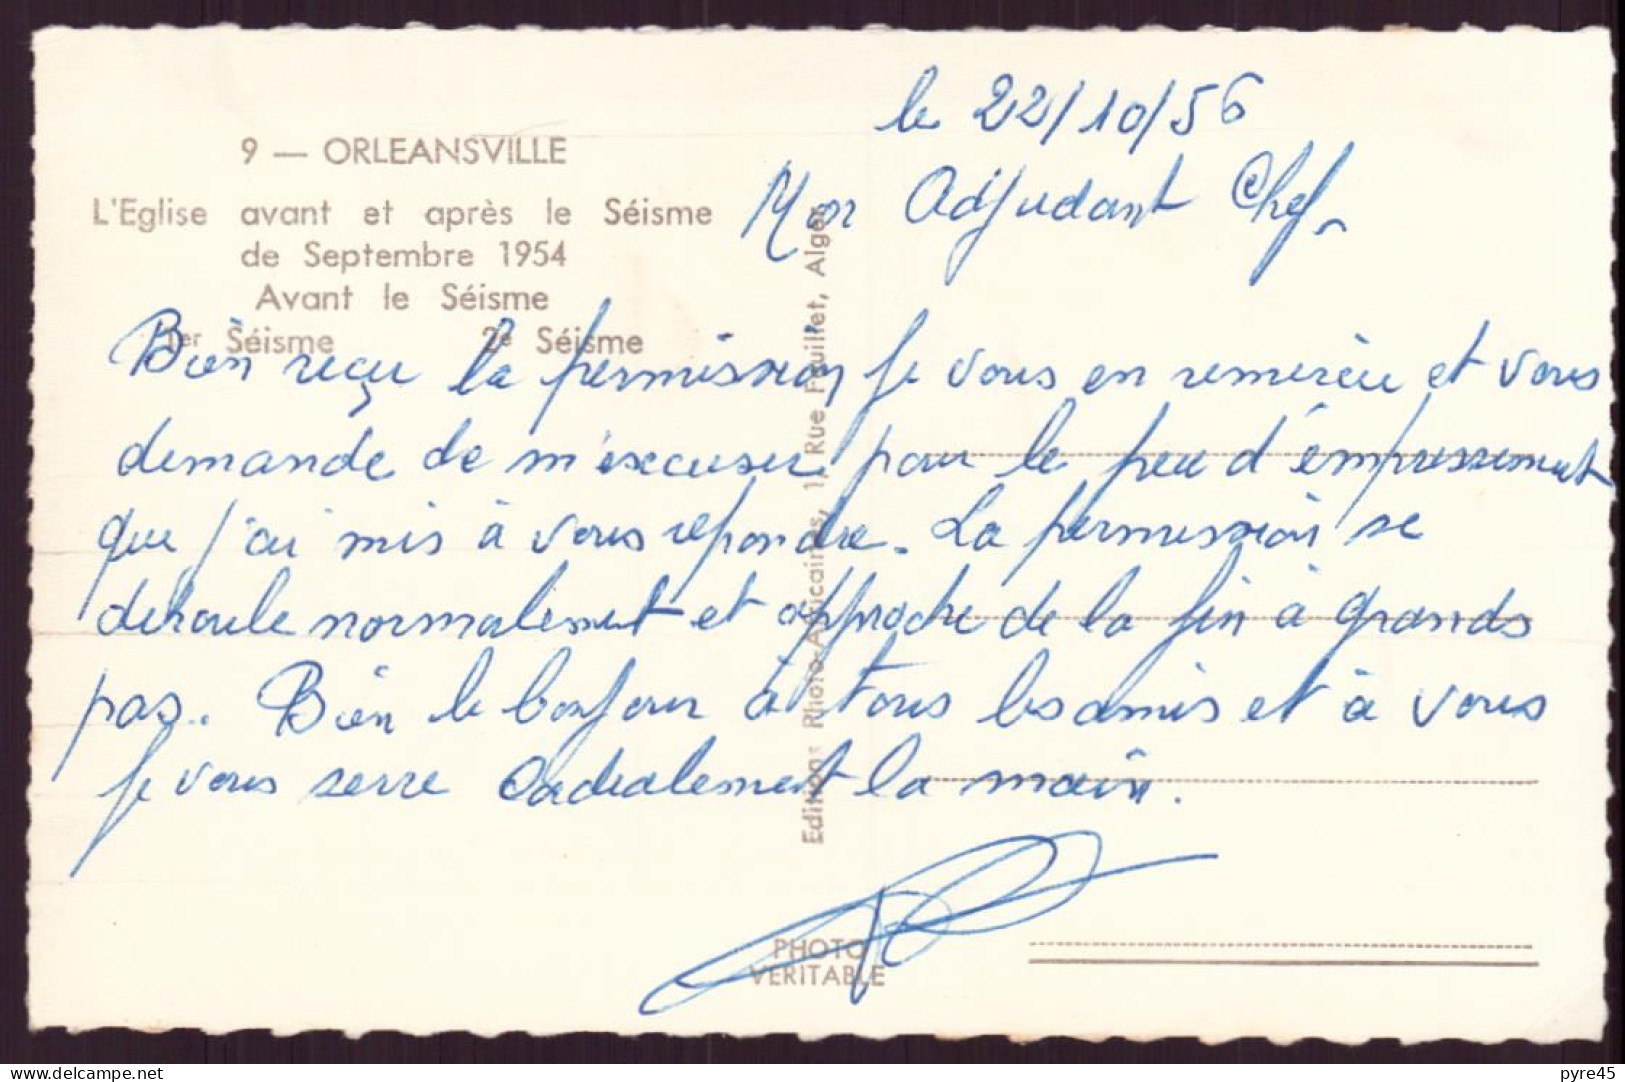 9 — ORLEANSVILLE
L'Eglise avant et après le Séisme
de Septembre 1954
Avant le Séisme
1er Séisme 2e Séisme
le 22/10/56
Mon Adjudant Chef.
Bien reçu la permission je vous en remercie et vous
demande de m'excuser pour le peu d'empressement
que j'ai mis à vous repondre. La permission se
deroule normalement et approche de la fin à grands
pas. Bien le bonjour à tous les amis et à vous
je vous serre cordialement la main.
Editions Photo-Africaines, 1, Rue Feuillet, Alger
PHOTO
VERITABLE
delcampe.net
pyre45